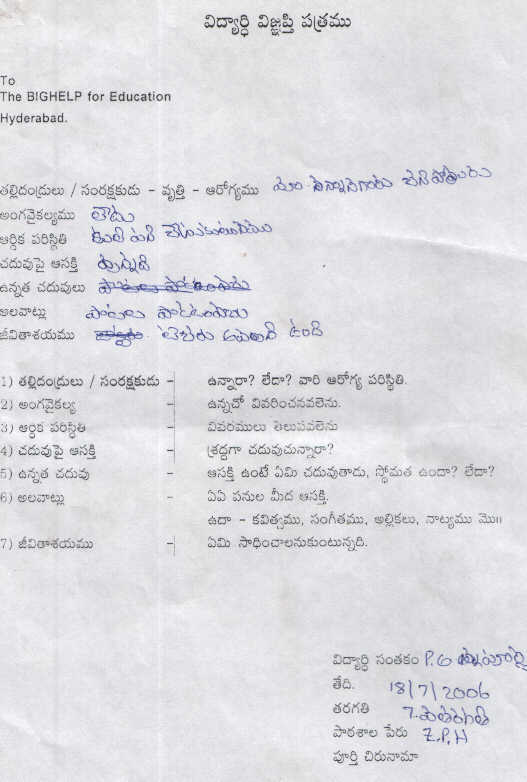 విద్యార్థి విజ్ఞప్తి పత్రము
To
The BIGHELP for Education
Hyderabad.
తల్లిదండ్రులు / సంరక్షకుడు - వృత్తి - ఆరోగ్యము మా నాన్నగారు చనిపోతారు
అంగవైకల్యము లేదు
ఆర్థిక పరిస్థితి కూలి పని చేసుకుంటాము
చదువుపై ఆసక్తి ఉన్నది
ఉన్నత చదువులు
అలవాట్లు పాటలు పాడడం
జీవితాశయము టీచరు అవ్వాలని ఉంది
1) తల్లిదండ్రులు / సంరక్షకుడు - ఉన్నారా? లేదా? వారి ఆరోగ్య పరిస్థితి.
2) అంగవైకల్య - ఉన్నచో వివరించవలెను.
3) ఆర్థిక పరిస్థితి - వివరములు తెలుపవలెను
4) చదువుపై ఆసక్తి - శ్రద్ధగా చదువుచున్నారా?
5) ఉన్నత చదువు - ఆసక్తి ఉంటే ఏమి చదువుతాడు, స్థోమత ఉందా? లేదా?
6) అలవాట్లు - ఏఏ పనుల మీద ఆసక్తి.
ఉదా - కవిత్వము, సంగీతము, అల్లికలు, నాట్యము మొ॥
7) జీవితాశయము - ఏమి సాధించాలనుకుంటున్నది.
విద్యార్థి సంతకం P.G
తేది. 18/7/2006
తరగతి 7.వ తరగతి
పాఠశాల పేరు Z.P.H
పూర్తి చిరునామా